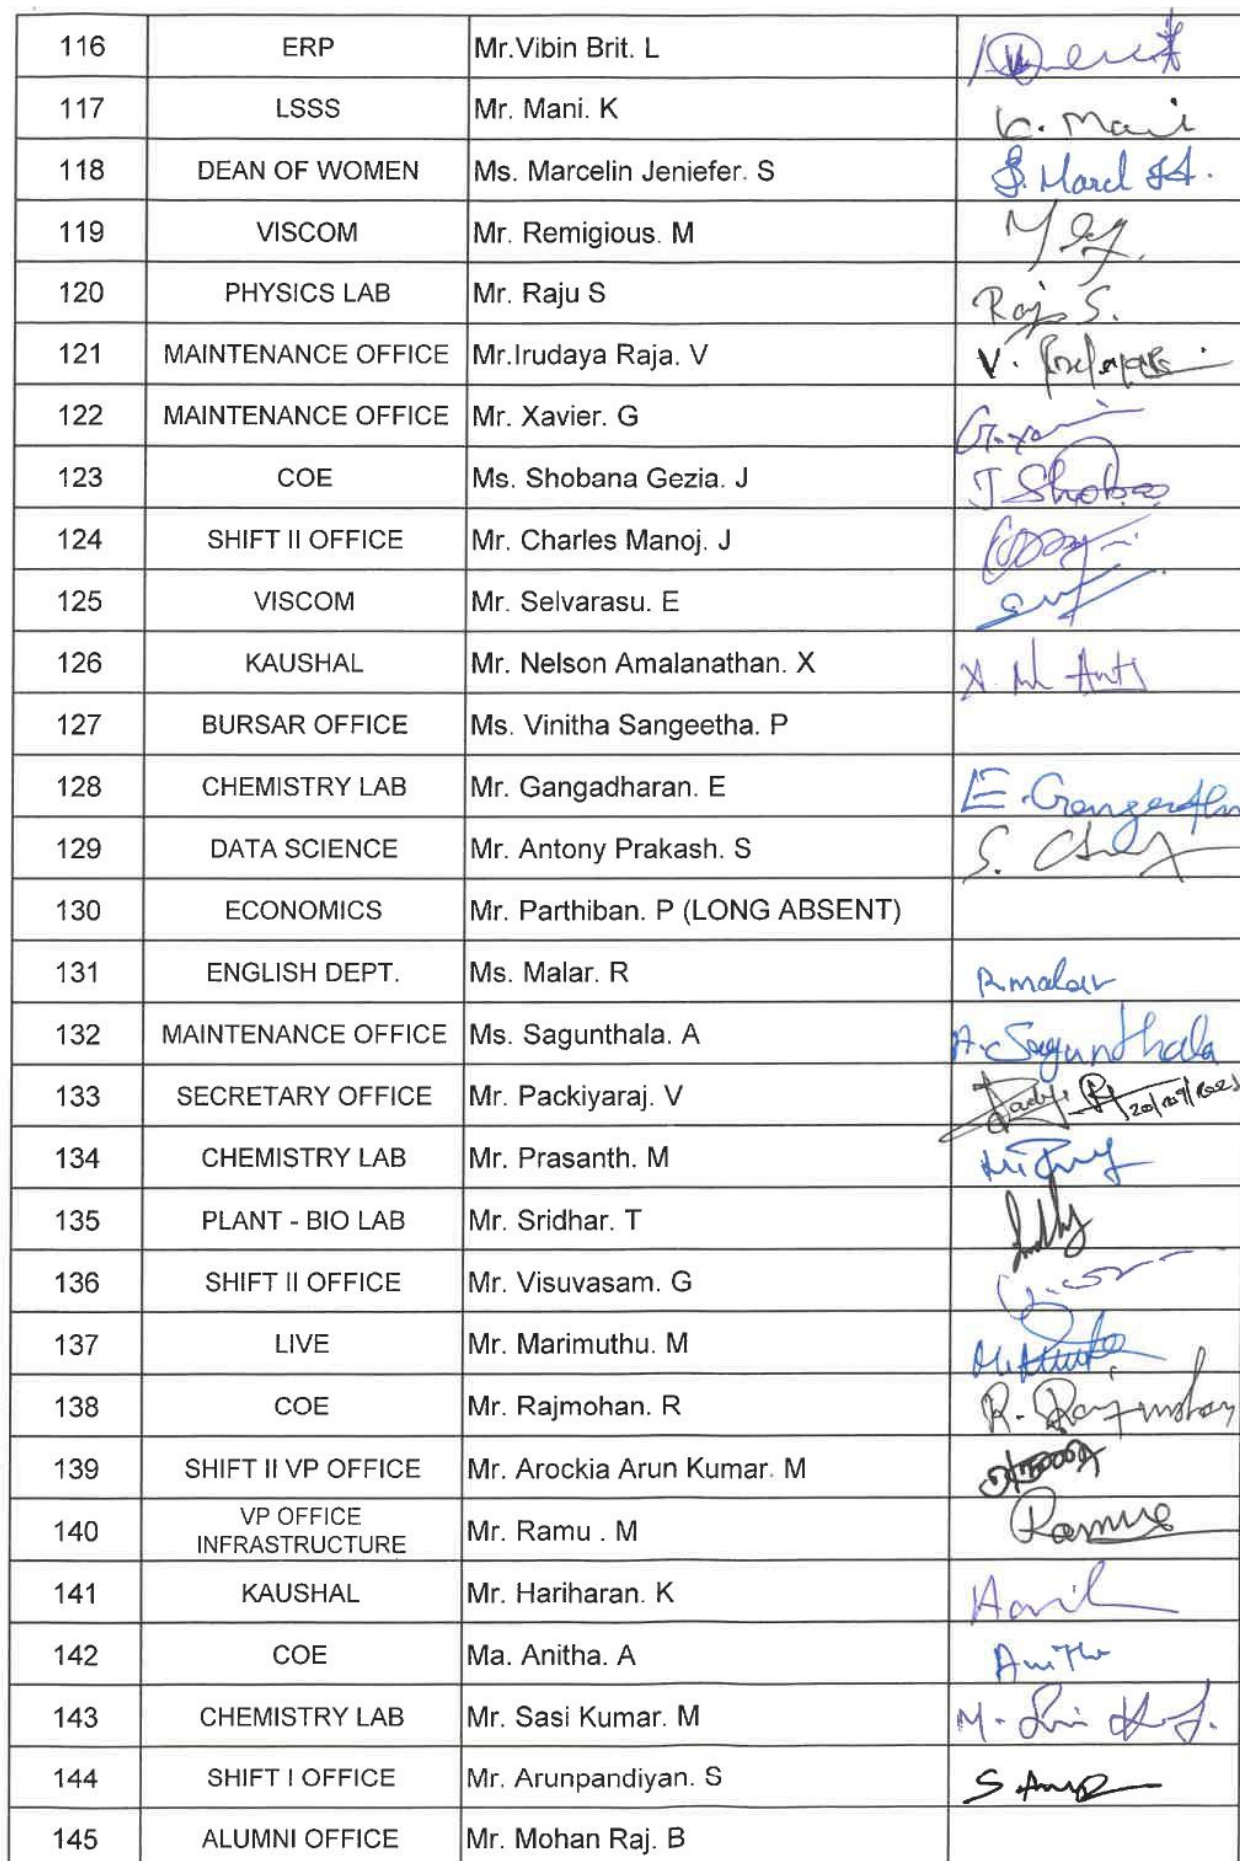 116 ERP Mr.Vibin Brit. L
117 LSSS Mr. Mani. K K. Mani
118 DEAN OF WOMEN Ms. Marcelin Jeniefer. S
119 VISCOM Mr. Remigious. M
120 PHYSICS LAB Mr. Raju S
121 MAINTENANCE OFFICE Mr.Irudaya Raja. V V.
122 MAINTENANCE OFFICE Mr. Xavier. G
123 COE Ms. Shobana Gezia. J J
124 SHIFT II OFFICE Mr. Charles Manoj. J
125 VISCOM Mr. Selvarasu. E
126 KAUSHAL Mr. Nelson Amalanathan. X X.
127 BURSAR OFFICE Ms. Vinitha Sangeetha. P
128 CHEMISTRY LAB Mr. Gangadharan. E E.
129 DATA SCIENCE Mr. Antony Prakash. S S.
130 ECONOMICS Mr. Parthiban. P (LONG ABSENT)
131 ENGLISH DEPT. Ms. Malar. R R.malar
132 MAINTENANCE OFFICE Ms. Sagunthala. A A. Sagunthala
133 SECRETARY OFFICE Mr. Packiyaraj. V
134 CHEMISTRY LAB Mr. Prasanth. M
135 PLANT - BIO LAB Mr. Sridhar. T
136 SHIFT II OFFICE Mr. Visuvasam. G
137 LIVE Mr. Marimuthu. M
138 COE Mr. Rajmohan. R R. Rajmohan
139 SHIFT II VP OFFICE Mr. Arockia Arun Kumar. M
140 VP OFFICE
INFRASTRUCTURE Mr. Ramu . M Ramu
141 KAUSHAL Mr. Hariharan. K
142 COE Ma. Anitha. A Anitha
143 CHEMISTRY LAB Mr. Sasi Kumar. M M.
144 SHIFT I OFFICE Mr. Arunpandiyan. S S
145 ALUMNI OFFICE Mr. Mohan Raj. B